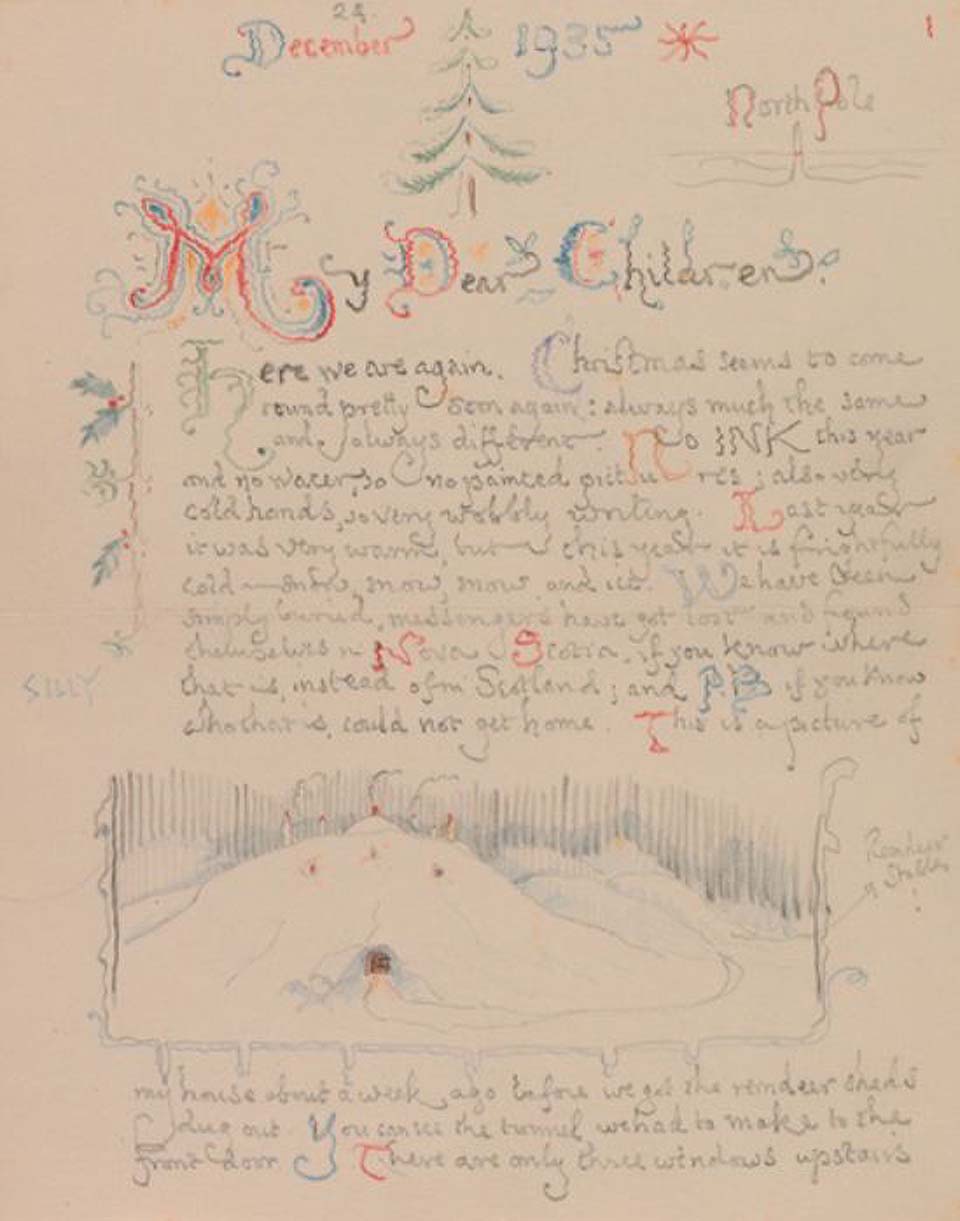 24.
December 1935
1
North Pole
My Dear Children:
Here we are again. Christmas seems to come
round pretty soon again: always much the same
and always different. No INK this year
and no water, so no painted pictures; also very
cold hands, so very wobbly writing. Last year
it was very warm, but this year it is frightfully
cold — snow, snow, snow and ice. We have been
simply buried, messengers have got lost and found
themselves in Nova Scotia, if you know where
SILLY
that is, instead of in Scotland; and P.B. if you know
who that is, could not get home. This is a picture of
Reindeer
Stables
my house about a week ago before we got the reindeer sheds
dug out. You can see the tunnel we had to make to the
front door. There are only three windows upstairs